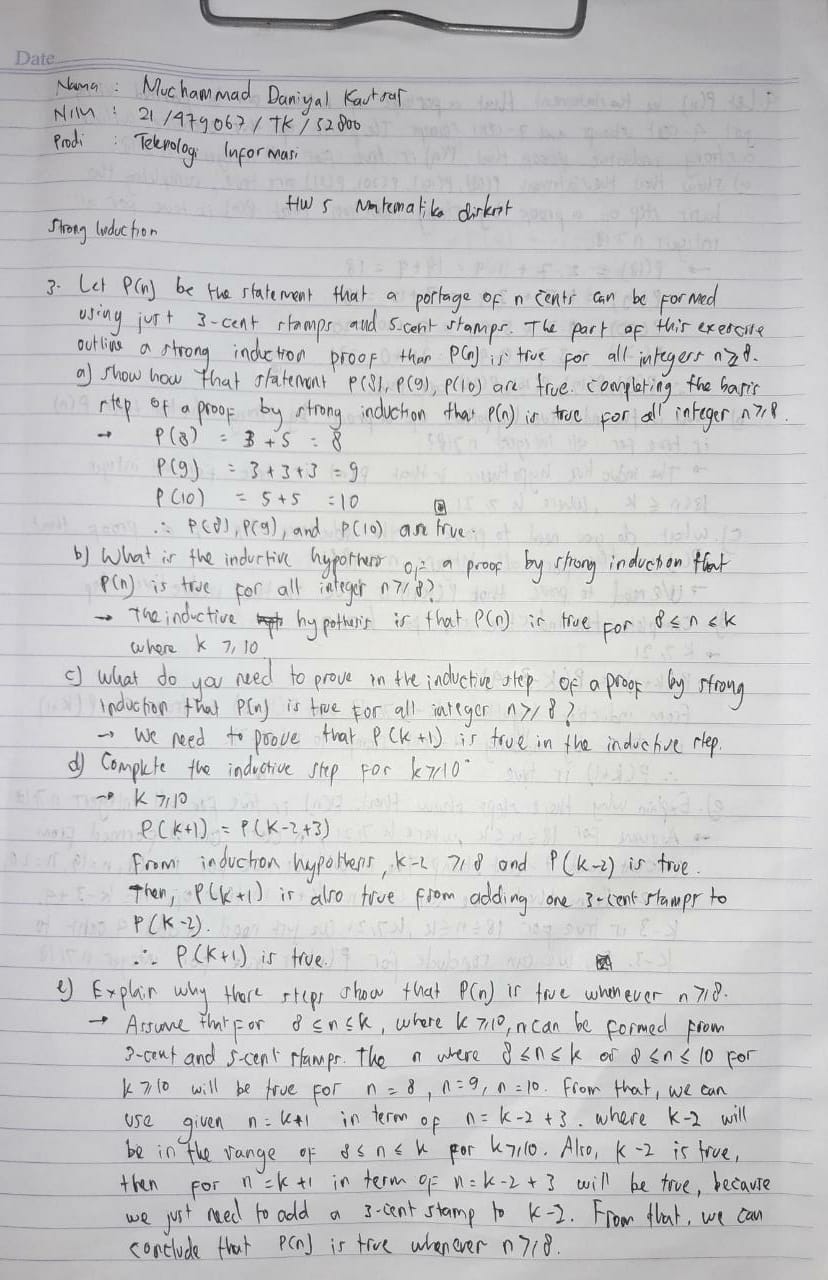 Date
Nama : Muchammad Daniyal Kautsar
NIM : 21/479067/TK/52800
Prodi : Teknologi Informasi
HW 5 Matematika diskrit
Strong Induction
3. Let P(n) be the statement that a portage of n cents can be formed
using just 3-cent stamps and 5-cent stamps. The part of this exercise
outline a strong induction proof than P(n) is true for all integers n ≥ 8.
a) show how that statement P(8), P(9), P(10) are true. completing the basis
step of a proof by strong induction that P(n) is true for all integer n ≥ 8.
→ P(8) = 3 + 5 = 8
P(9) = 3 + 3 + 3 = 9
P(10) = 5 + 5 = 10
∴ P(8), P(9), and P(10) are true.
b) What is the inductive hypothesis of a proof by strong induction that
P(n) is true for all integer n ≥ 8?
→ The inductive hypothesis is that P(n) is true for 8 ≤ n ≤ k
where k ≥ 10
c) What do you need to prove in the inductive step of a proof by strong
induction that P(n) is true for all integer n ≥ 8?
→ We need to prove that P(k+1) is true in the inductive step.
d) Complete the inductive step for k ≥ 10
→ k ≥ 10
P(k+1) = P(k-2+3)
From induction hypothesis, k-2 ≥ 8 and P(k-2) is true.
Then, P(k+1) is also true from adding one 3-cent stamps to
P(k-2).
∴ P(k+1) is true.
e) Explain why those steps show that P(n) is true whenever n ≥ 8.
→ Assume that for 8 ≤ n ≤ k, where k ≥ 10, n can be formed from
3-cent and 5-cent stamps. The n where 8 ≤ n ≤ k or 8 ≤ n ≤ 10 for
k ≥ 10 will be true for n = 8, n = 9, n = 10. From that, we can
use given n = k+1 in term of n = k-2+3. where k-2 will
be in the range of 8 ≤ n ≤ k for k ≥ 10. Also, k-2 is true,
then for n = k+1 in term of n = k-2+3 will be true, because
we just need to add a 3-cent stamp to k-2. From that, we can
conclude that P(n) is true whenever n ≥ 8.